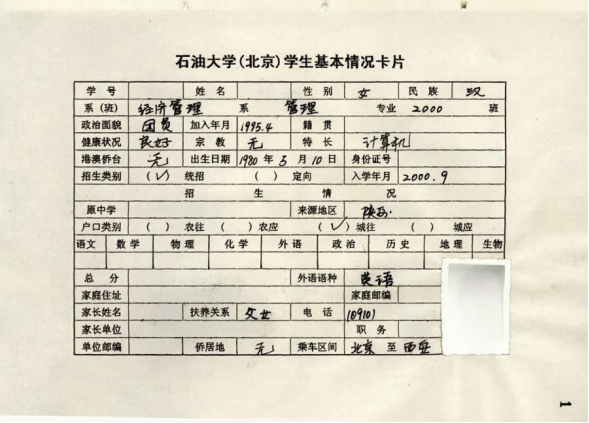 石油大学(北京)学生基本情况卡片
学 号 姓 名 性 别 女 民 族 汉
系(班) 经济管理 系 管理 专业 2000 班
政治面貌 团员 加入年月 1995.4 籍 贯
健康状况 良好 宗 教 无 特 长 计算机
港澳侨台 无 出生日期 1980 年 3 月 10 日 身份证号
招生类别 (√) 统招 ( ) 定向 入学年月 2000.9
招 生 情 况
原中学 来源地区 陕西
户口类别 ( ) 农往 ( ) 农应 (√) 城往 ( ) 城应
语文 数学 物理 化学 外语 政治 历史 地理 生物
总 分 外语语种 英语
家庭住址 家庭邮编
家长姓名 扶养关系 父女 电 话 (0910)
家长单位 职 务
单位邮编 侨居地 无 乘车区间 北京 至 西安
1